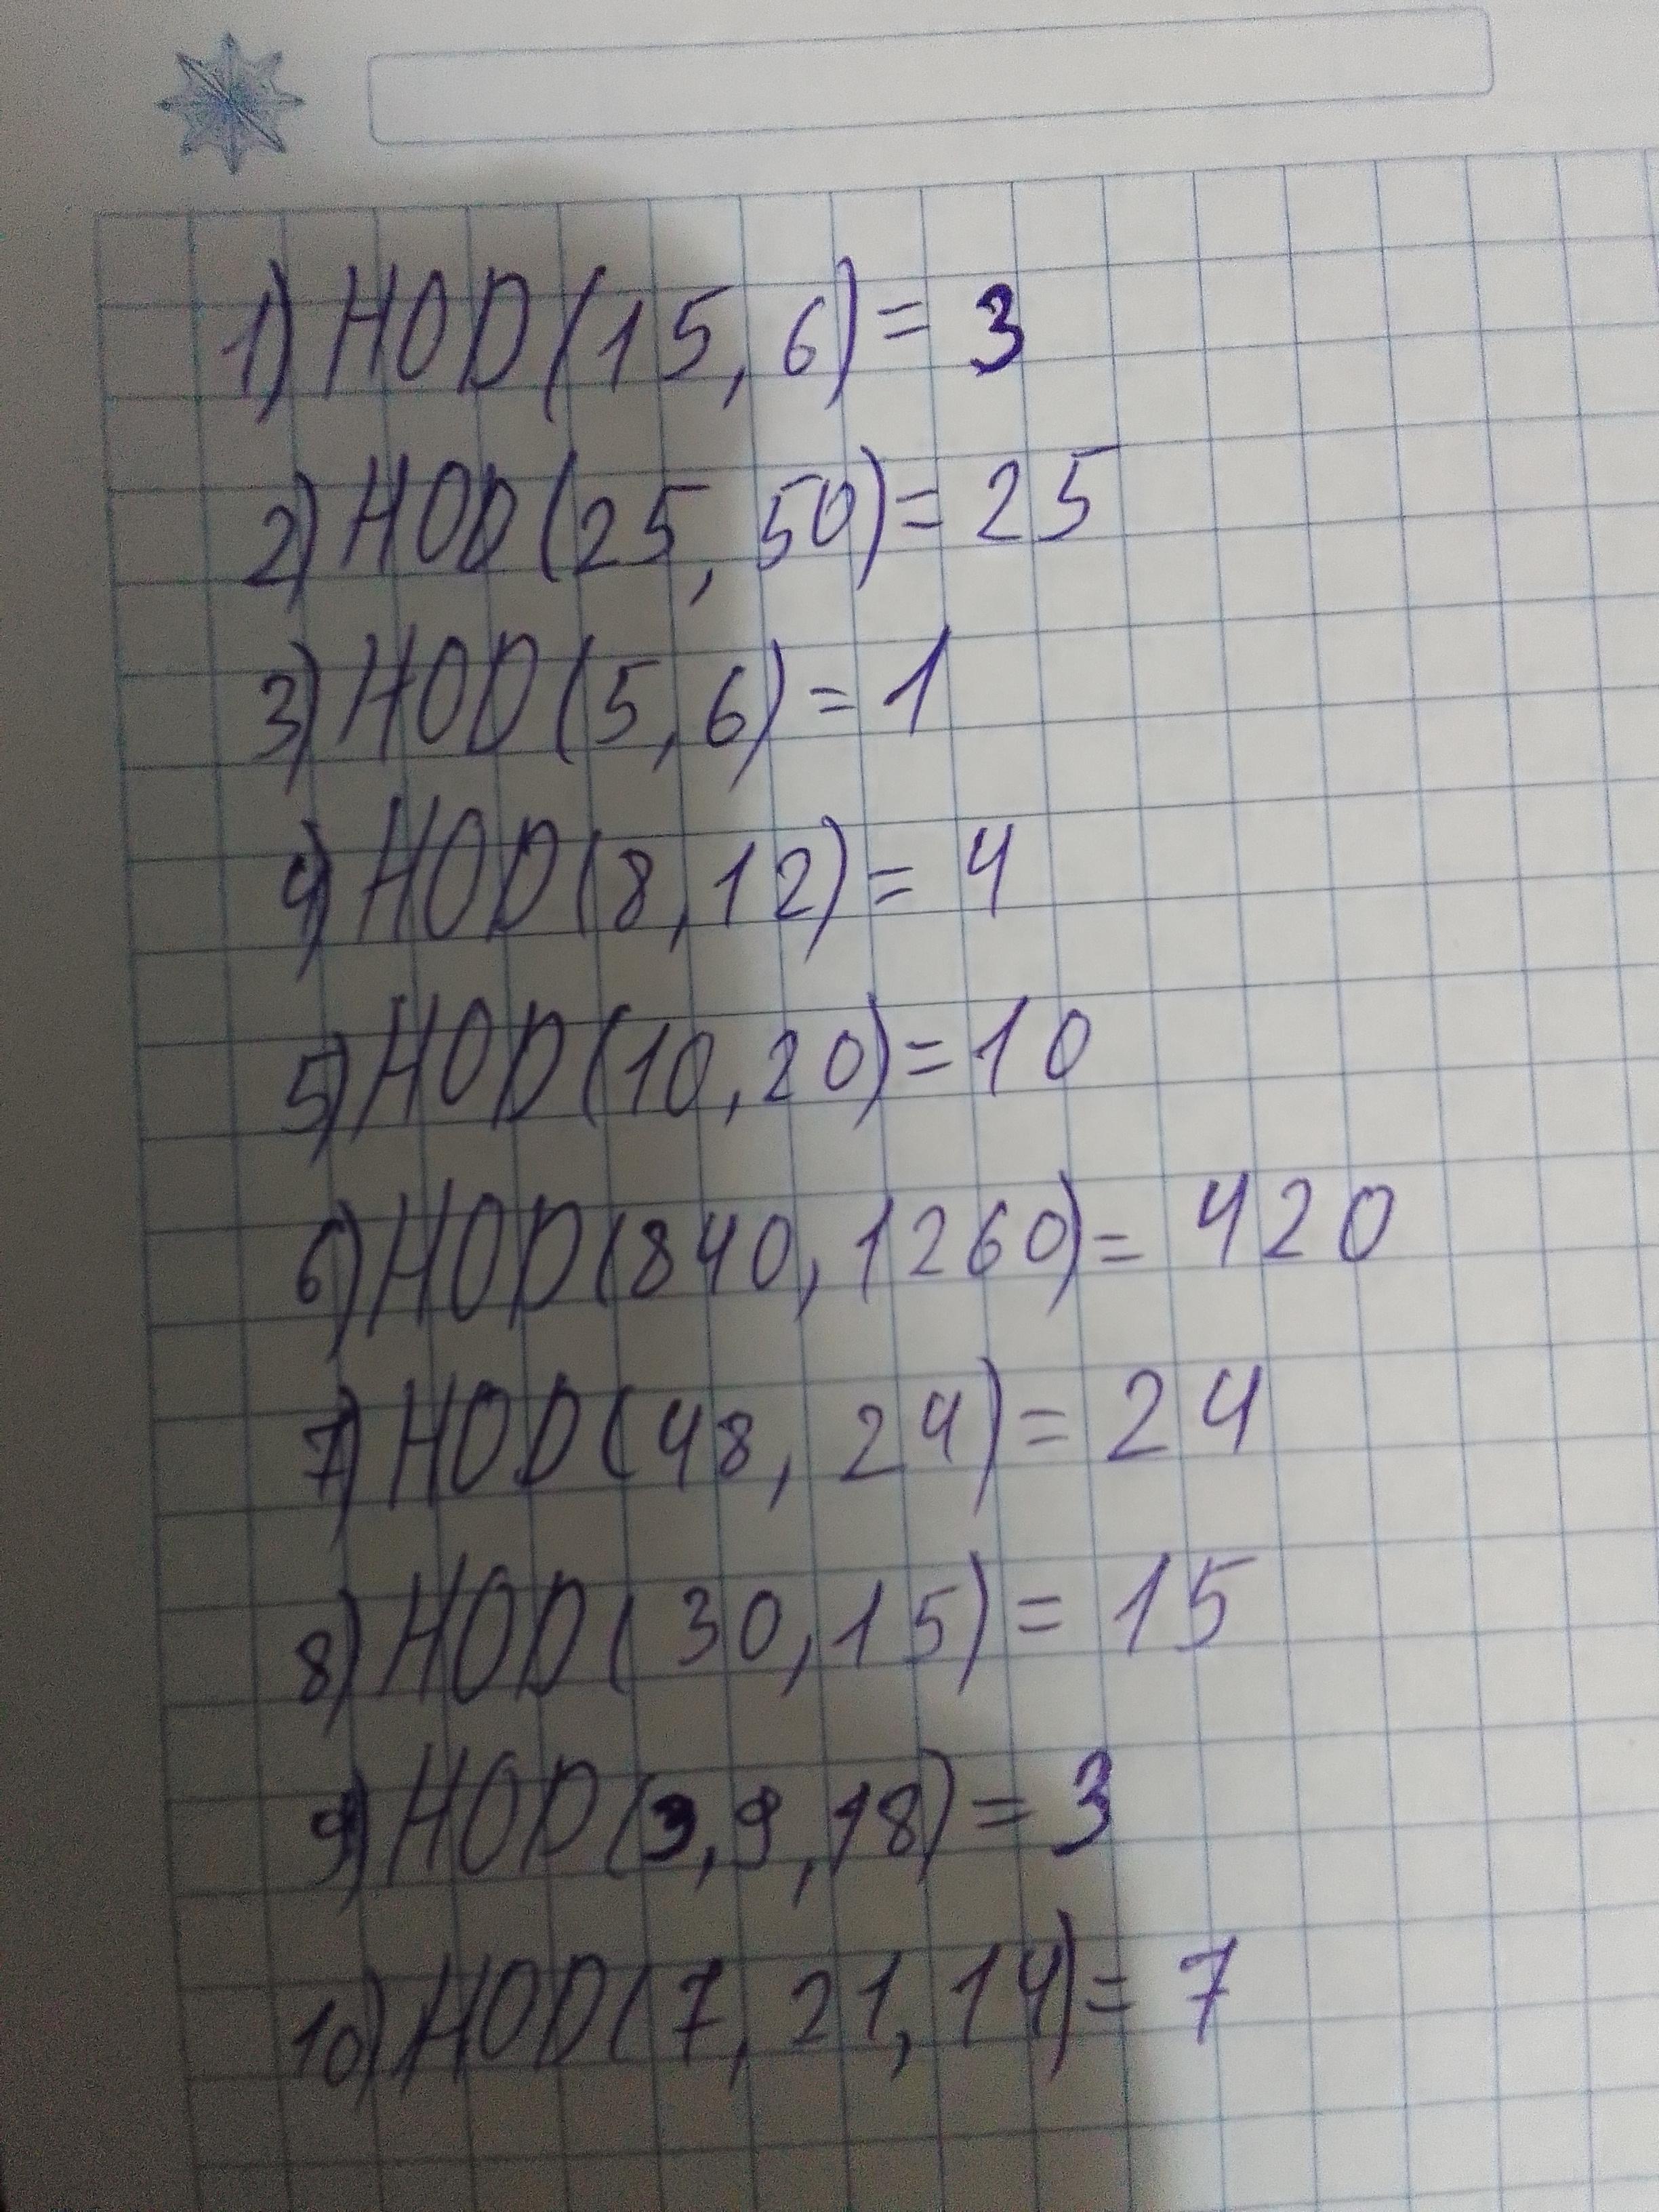 1) HOD(15,6)= 3
2) HOD(25,50)= 25
3) HOD(5,6)=1
4) HOD(8,12)= 4
5) HOD(10,20)=10
6) HOD(840,1260)= 420
7) HOD(48,24)= 24
8) HOD(30,15)= 15
9) HOD(3,9,18)= 3
10) HOD(7,21,14)= 7